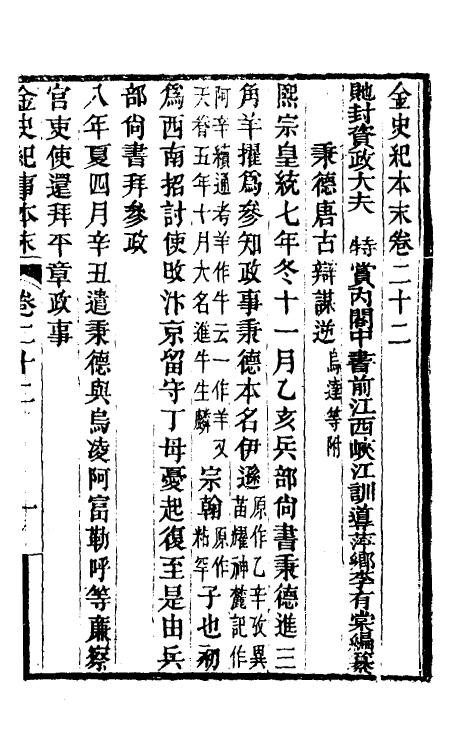 金史紀本末卷二十二
貤封資政大夫　特賞內閣中書前江西峽江訓導萍鄉李有棠編纂
秉德唐古辯謀逆烏達等附
熙宗皇統七年冬十一月乙亥兵部尚書秉德進三
角羊擢爲參知政事秉德本名伊遜原作乙辛攷異苗耀神麓記作
阿辛續通考羊作牛云一作羊又天眷五年十月大名進牛生麟宗翰原作粘罕子也初
爲西南招討使改汴京留守丁母憂起復至是由兵
部尚書拜參政
八年夏四月辛丑遣秉德與烏凌阿富勒呼等廉察
官吏使還拜平章政事
金史紀事本末 卷二十二 一